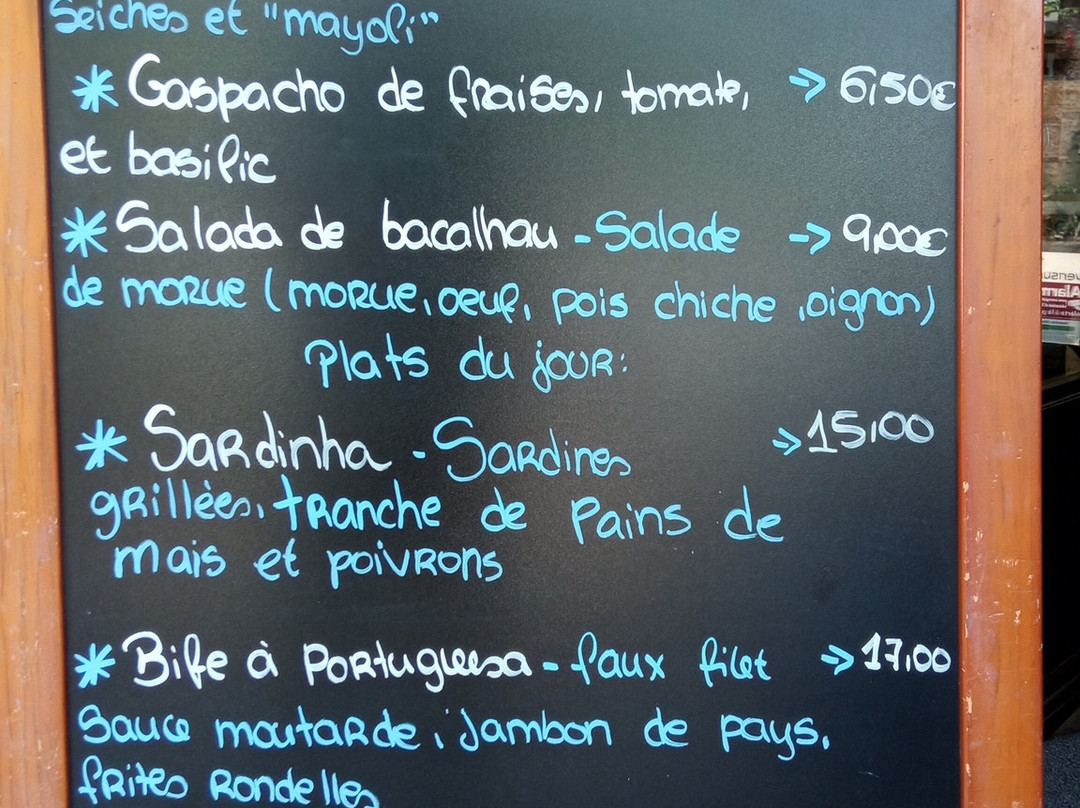 Seiches et "mayoli"
* Gaspacho de fraises, tomate, → 6,50€
et basilic
* Salada de bacalhau - Salade → 9,00€
de morue (morue, oeuf, pois chiche, oignon)
Plats du jour:
* Sardinha - Sardines → 15,00
grillées, tranche de Pains de
mais et poivrons
* Bife à Portuguesa - faux filet → 17,00
Sauce moutarde, jambon de pays,
frites Rondelles